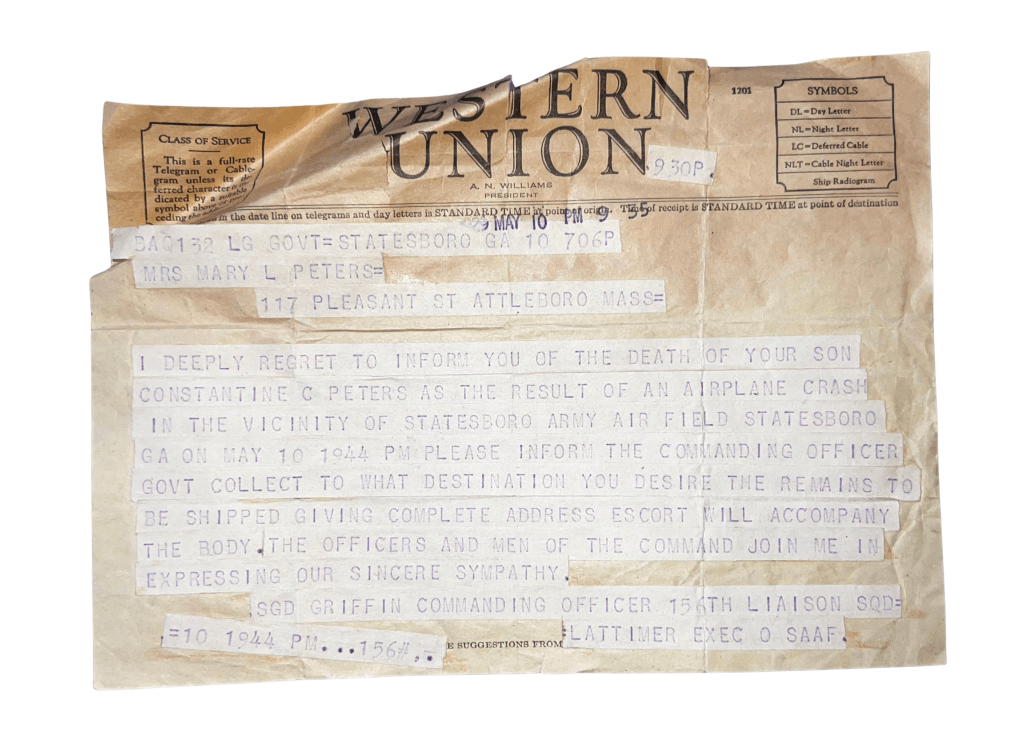 WESTERN
UNION
1201
A. N. WILLIAMS
PRESIDENT
CLASS OF SERVICE
This is a full-rate
Telegram or Cable-
gram unless its de-
ferred character is in-
dicated by a suitable
symbol above or
ceding the
SYMBOLS
DL=Day Letter
NL=Night Letter
LC=Deferred Cable
NLT=Cable Night Letter
Ship Radiogram
930P.
in the date line on telegrams and day letters is STANDARD TIME at point of origin. Time of receipt is STANDARD TIME at point of destination
MAY 10 PM 9 35
BAQ132 LG GOVT=STATESBORO GA 10 706P
MRS MARY L PETERS=
117 PLEASANT ST ATTLEBORO MASS=
I DEEPLY REGRET TO INFORM YOU OF THE DEATH OF YOUR SON
CONSTANTINE C PETERS AS THE RESULT OF AN AIRPLANE CRASH
IN THE VICINITY OF STATESBORO ARMY AIR FIELD STATESBORO
GA ON MAY 10 1944 PM PLEASE INFORM THE COMMANDING OFFICER
GOVT COLLECT TO WHAT DESTINATION YOU DESIRE THE REMAINS TO
BE SHIPPED GIVING COMPLETE ADDRESS ESCORT WILL ACCOMPANY
THE BODY. THE OFFICERS AND MEN OF THE COMMAND JOIN ME IN
EXPRESSING OUR SINCERE SYMPATHY.
SGD GRIFFIN COMMANDING OFFICER 156TH LIAISON SQD=
=LATTIMER EXEC O SAAF.
=10 1944 PM...156#,.-
E SUGGESTIONS FROM